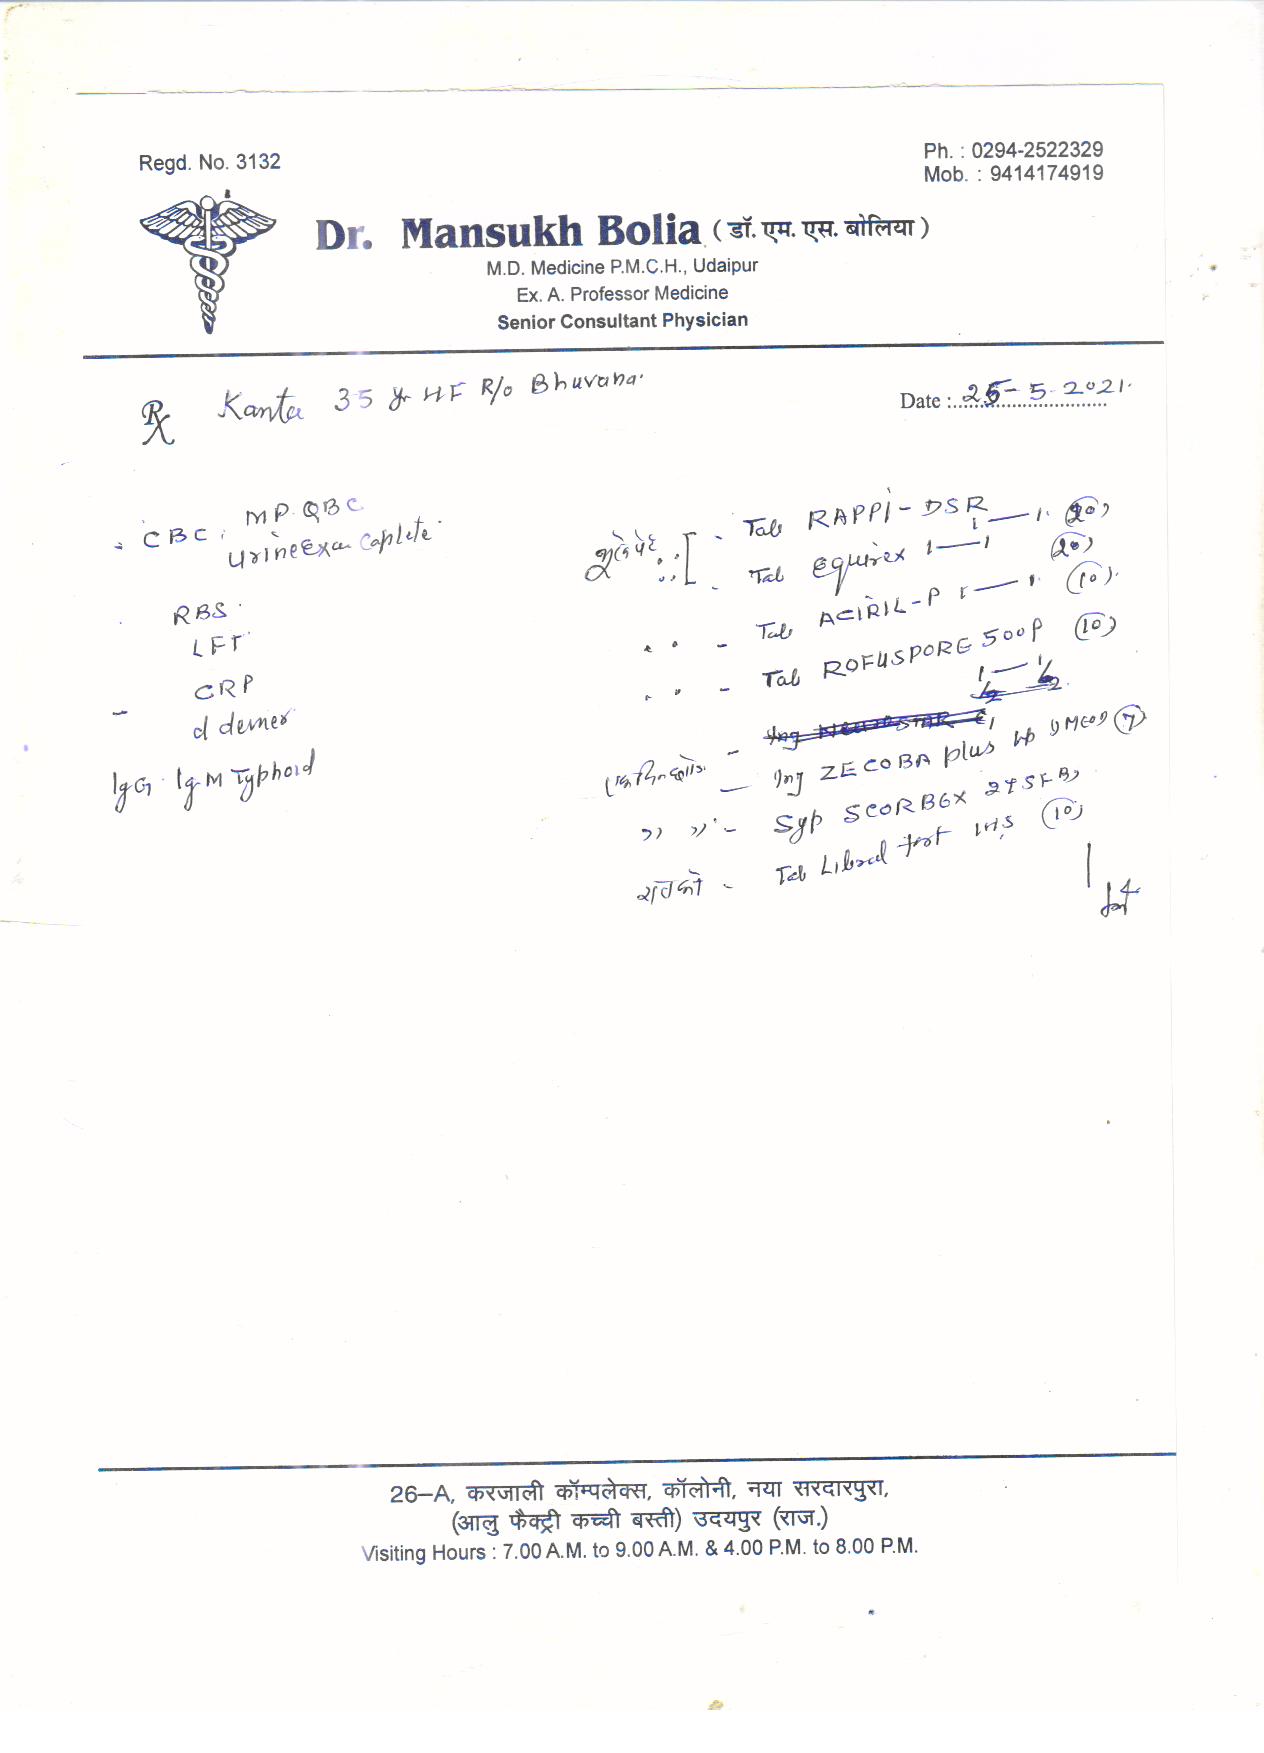 Regd. No. 3132
Ph. : 0294-2522329
Mob. : 9414174919
Dr. Mansukh Bolia ( डॉ. एम. एस. बोलिया )
M.D. Medicine P.M.C.H., Udaipur
Ex. A. Professor Medicine
Senior Consultant Physician
Rx Kanta 35 yr HF R/o Bhuvana.
Date : 25-5-2021.
CBC, MP.QBC
Urine Exam Coplete.
RBS.
LFT
CRP
- d demer
IgG. IgM Typhoid
भूखे पेट - Tab RAPPI-DSR
1—1. (20)
- Tab Equirex 1—1 (20)
- Tab ACIRIL-P 1—1. (10).
- Tab ROFUSPORG 500P (10)
1—1
- Inj ZECOBA plus (7)
,, ,, - Syp SCORBGX 2TSF BD
रातको - Tab Liberal fort 1HS (10)
26–A, करजाली कॉम्पलेक्स, कॉलोनी, नया सरदारपुरा,
(आलु फैक्ट्री कच्ची बस्ती) उदयपुर (राज.)
Visiting Hours : 7.00 A.M. to 9.00 A.M. & 4.00 P.M. to 8.00 P.M.